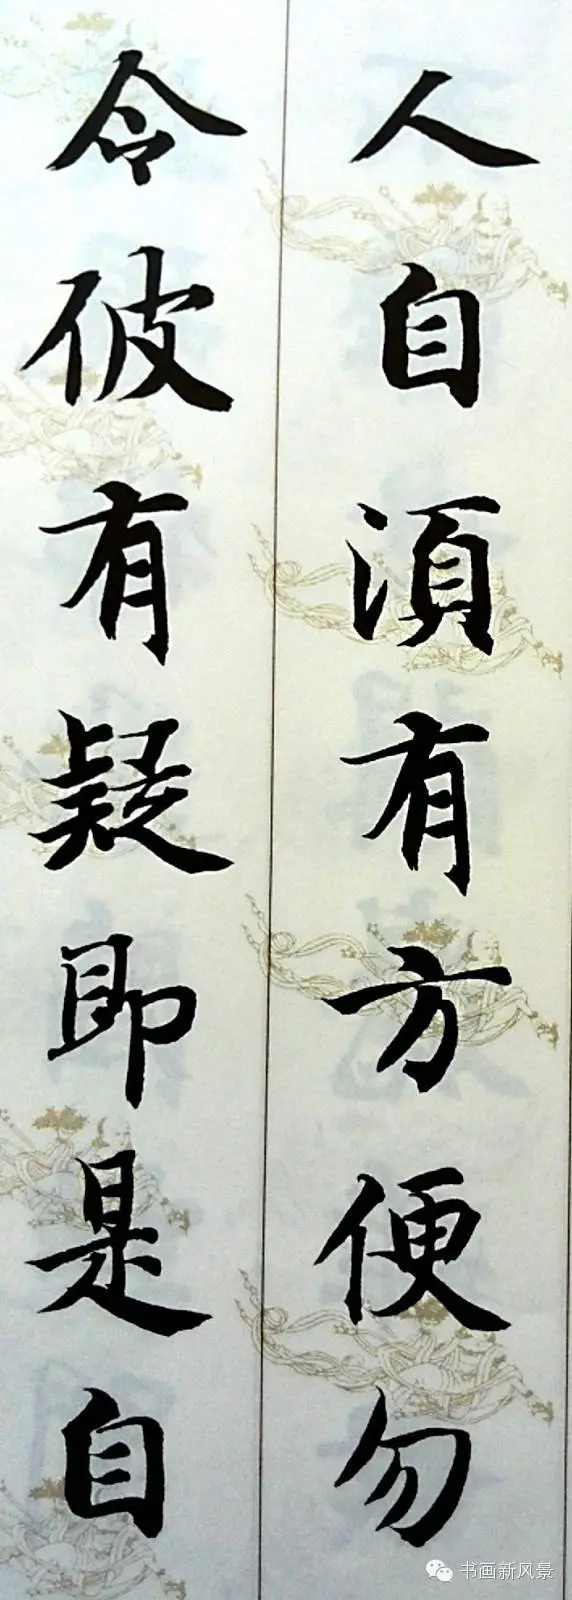 人自湏有方便勿
令彼有疑即是自
书画新风景